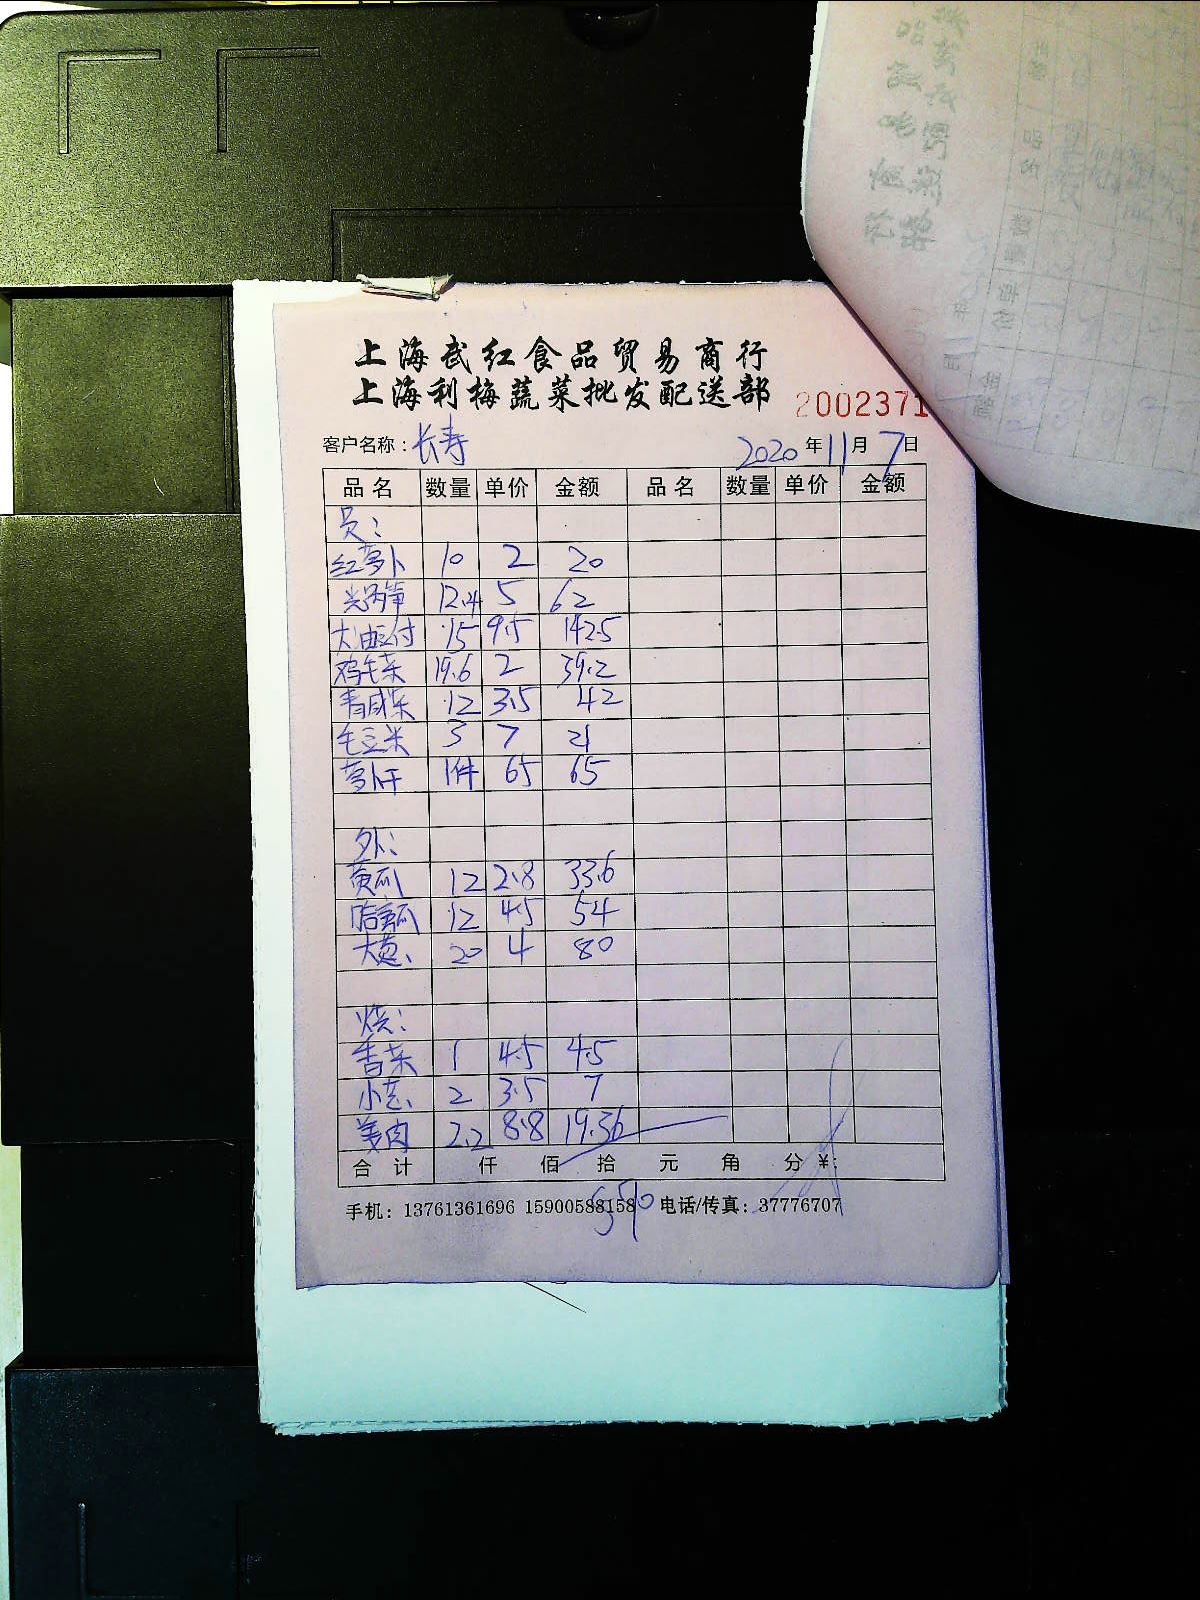 上海武红食品贸易商行
上海利梅蔬菜批发配送部 2002371
客户名称：长寿 2020年11月7日
品名 数量 单价 金额 品名 数量 单价 金额
员：
红萝卜 10 2 20
光芦笋 12.4 5 62
大油豆付 15 9.5 142.5
鸡毛菜 19.6 2 39.2
青咸菜 12 3.5 42
毛豆米 3 7 21
萝卜干 1件 65 65
外：
黄瓜 12 2.8 33.6
哈密瓜 12 4.5 54
大葱 20 4 80
烧：
香菜 1 4.5 4.5
小葱 2 3.5 7
姜肉 2.2 8.8 19.36
合计 仟 佰 拾 元 角 分 ¥：
手机：13761361696 15900588158 电话/传真：37776707